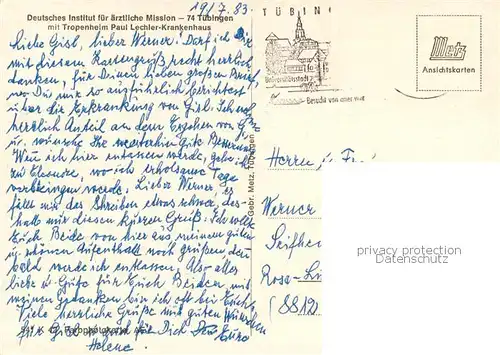 19/7.83.
Deutsches Institut für ärztliche Mission – 74 Tübingen
mit Tropenheim Paul Lechler-Krankenhaus
Liebe Gisl, lieber Werner! Darf ich
mit diesem Kartengruß recht herzlich
danken, für Deinen lieben großen Brief,
wo Du mir so ausführlich berichtest
über die Erkrankung von Gisl. Ich
herzlich Anteil an dem Ergehen von
u. wünsche Ihr weiterhin Gute Besserung
Wenn ich hier entlassen werde, gehe
zu Eleonore, wo ich erholsame Tage
verbringen werde. Lieber Werner, es
fällt mir das Schreiben etwas schwer, des-
halb nur diesen kurzen Gruß. Ich wollte
Euch Beide von hier aus meinem guten
u. schönen Aufenthalt noch grüßen, denn
bald werde ich entlassen. Also alles
liebe u. Gute für Euch Beiden, mit
meinen Gedanken bin ich oft bei Euch.
Viele herzliche Grüße mit guten Wünschen
für Gisl für Dich Eure
Helene
Gebr. Metz, Tübingen
TÜBIN
Universitätsstadt
Besuch von
Metz
Ansichtskarten
Herrn u. Fr.
Werner
Seifher
Rosa-L
(8812)
privacy protection
Datenschutz